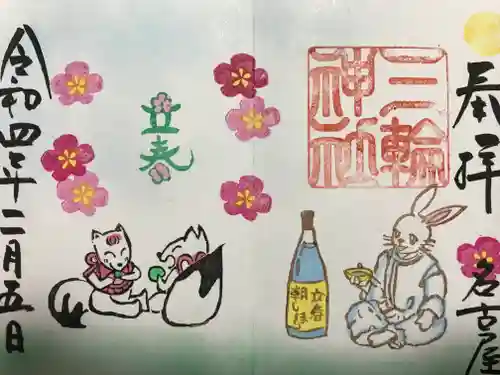 奉拝
名古屋
三輪
神社
立春
朝しぼり
立春
令和四年二月五日